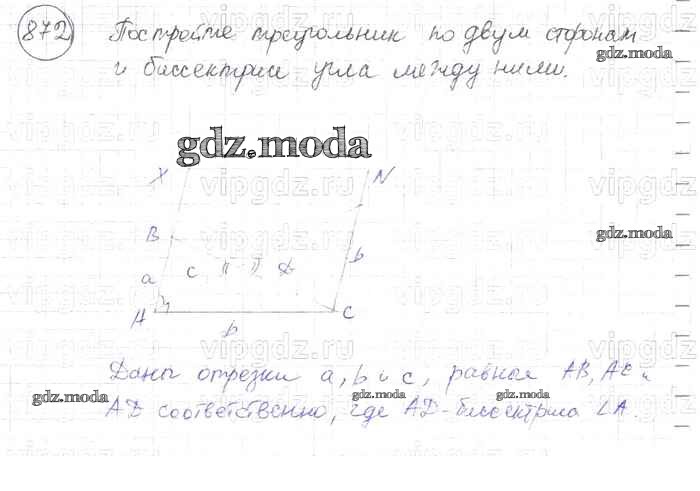 872 Постройте треугольник по двум сторонам
и биссектрисе угла между ними.
gdz.moda
gdz.moda
X N
B
gdz.moda
a c b
A C
b
Даны отрезки a, b и c, равные AB, AC и
AD соответственно, где AD-биссектриса ∠A.
gdz.moda
gdz.moda
gdz.moda
vipgdz.ru